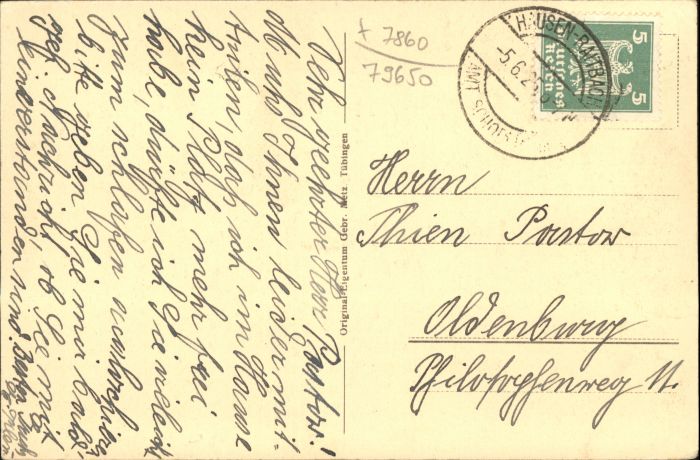 Sehr verehrter Herr Pastor!
Muß Ihnen leider mit-
teilen, daß ich im Hause
kein Platz mehr frei
habe, dürfte ich Sie vielleicht
zum schlafen
bitte geben Sie mir bald
gef. Nachricht, ob Sie mit
einverstanden sind. Besten Gruß
+ 7860
79650
HAUSEN-RAITBACH
-5.6.2
AMT SCHOPFHEIM
5
5
Deutsches
Reich
Original-Eigentum Gebr. Metz Tübingen
Herrn
Thien Pastor
Oldenburg
Philosophenweg 11.